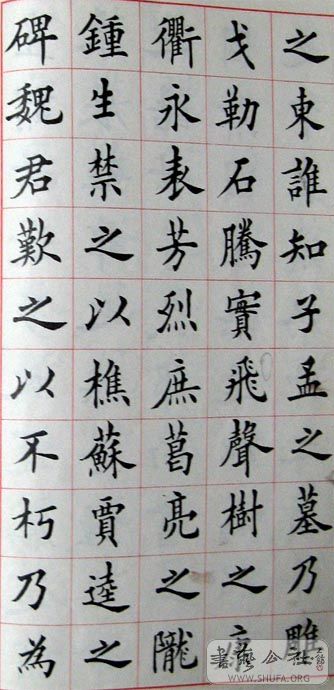 之東誰知子孟之墓乃雕
戈勒石騰實飛聲樹之康
衢永表芳烈庶葛亮之隴
鍾生禁之以樵蘇賈逵之
碑魏君歎之以不朽乃為
書藝公社
WWW.SHUFA.ORG